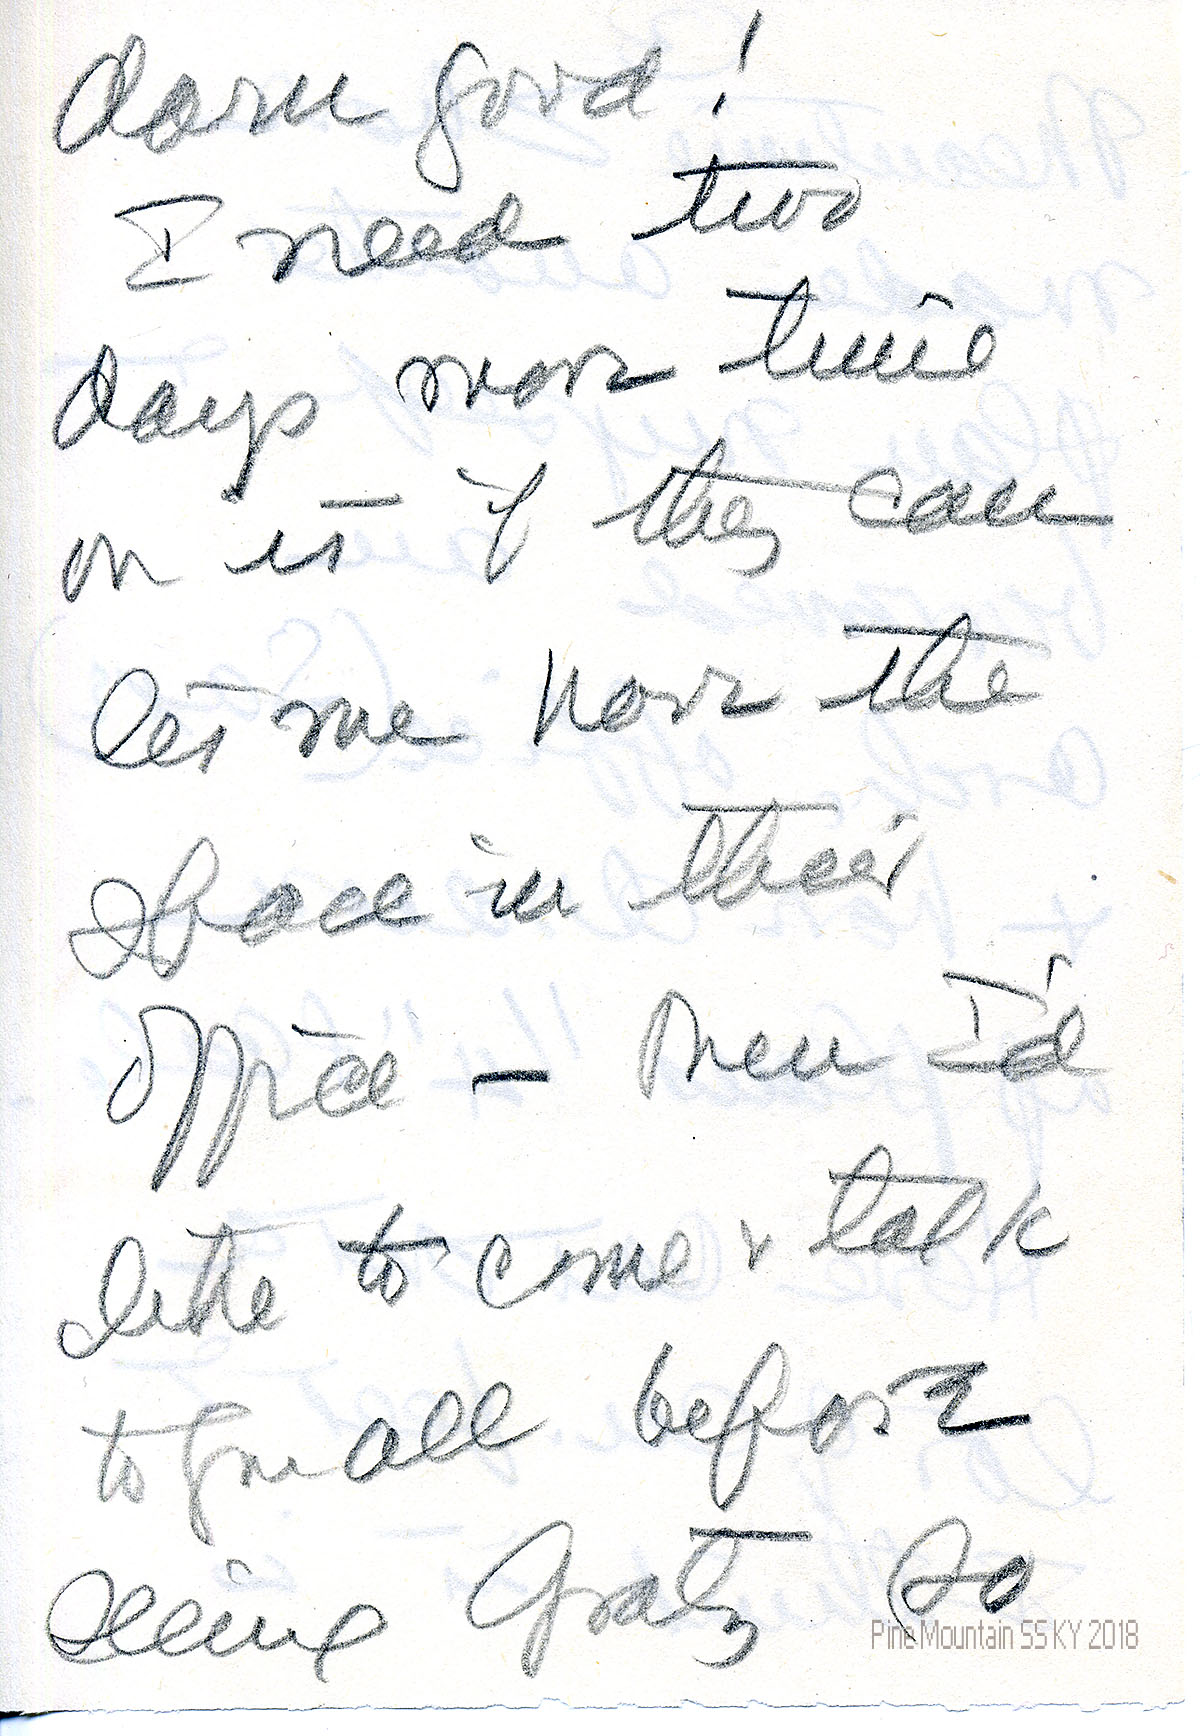 darn good!
I need two
days more time
on it if they can
let me have the
space in their
office - Then I'd
like to come & talk
to you all before
seeing Gratz So
Pine Mountain SS KY 2018